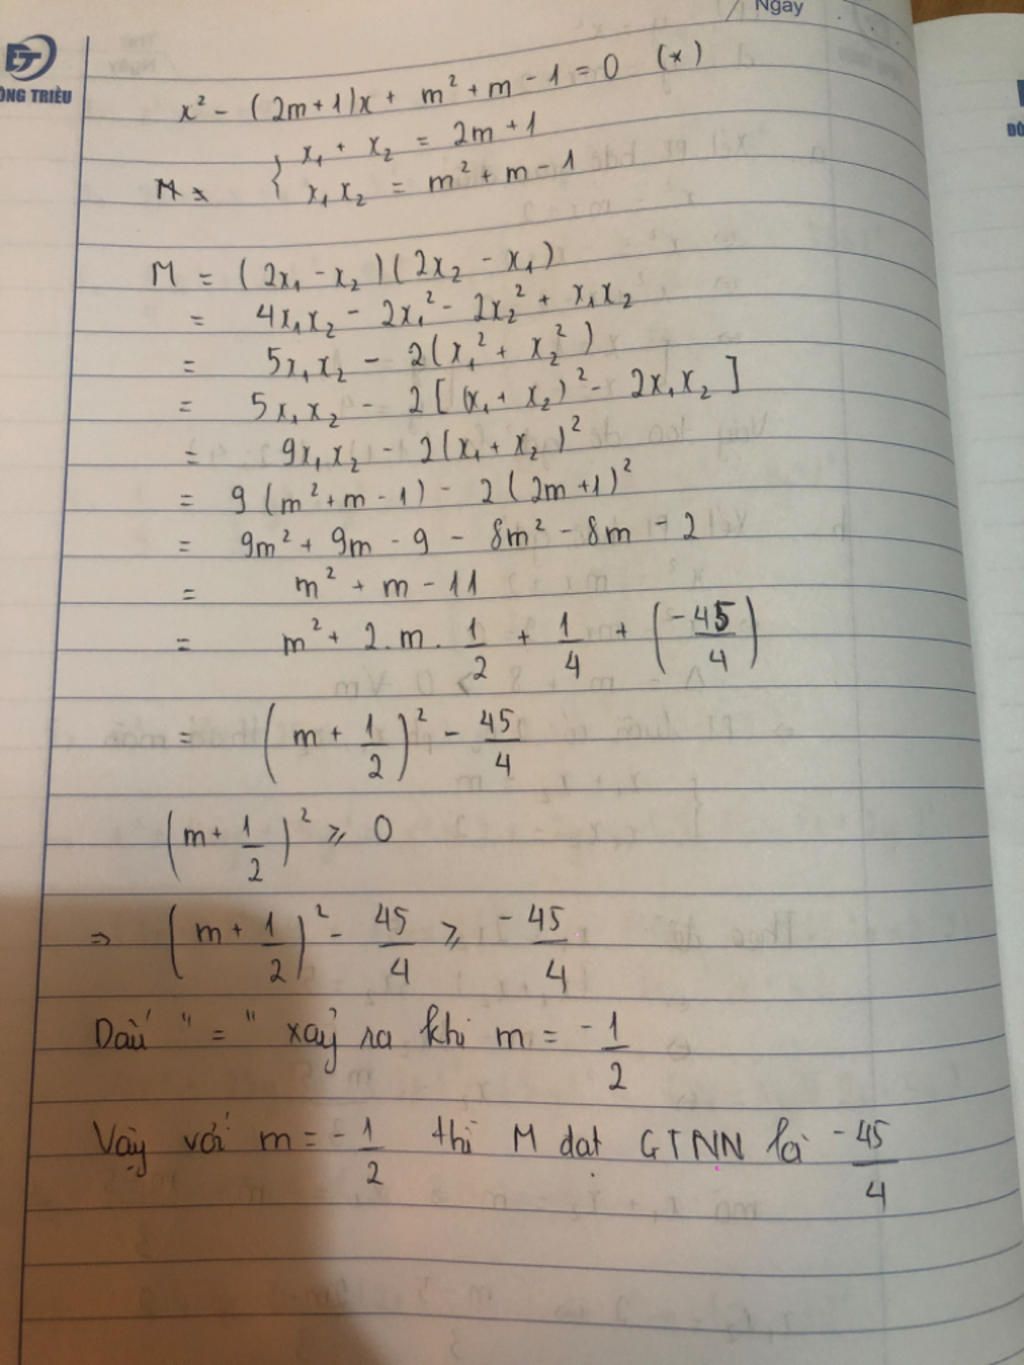 Ngày
ĐT
ÔNG TRIỀU
x² - (2m+1)x + m² + m - 1 = 0 (*)
{ x₁ + x₂ = 2m + 1
x₁x₂ = m² + m - 1
M = (2x₁ - x₂)(2x₂ - x₁)
= 4x₁x₂ - 2x₁² - 2x₂² + x₁x₂
= 5x₁x₂ - 2(x₁² + x₂²)
= 5x₁x₂ - 2[(x₁ + x₂)² - 2x₁x₂]
= 9x₁x₂ - 2(x₁ + x₂)²
= 9(m² + m - 1) - 2(2m+1)²
= 9m² + 9m - 9 - 8m² - 8m - 2
= m² + m - 11
= m² + 2.m.1/2 + 1/4 + (-45/4)
= (m + 1/2)² - 45/4
(m + 1/2)² ⩾ 0
⇒ (m + 1/2)² - 45/4 ⩾ -45/4
Dấu "=" xảy ra khi m = -1/2
Vậy với m = -1/2 thì M đạt GTNN là -45/4